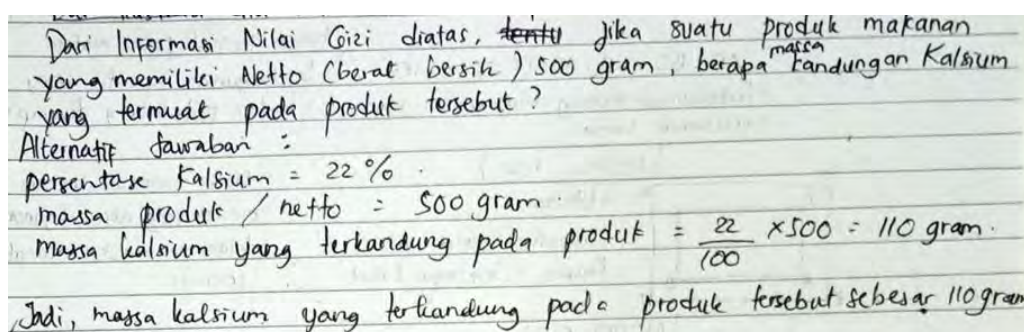 Dari Informasi Nilai Gizi diatas, tentu jika suatu produk makanan
yang memiliki Netto (berat bersih) 500 gram, berapa massa kandungan Kalsium
yang termuat pada produk tersebut?
Alternatif Jawaban :
persentase Kalsium = 22 % .
massa produk / netto = 500 gram.
massa kalsium yang terkandung pada produk = 22/100 x 500 = 110 gram.
Jadi, massa kalsium yang terkandung pada produk tersebut sebesar 110 gram